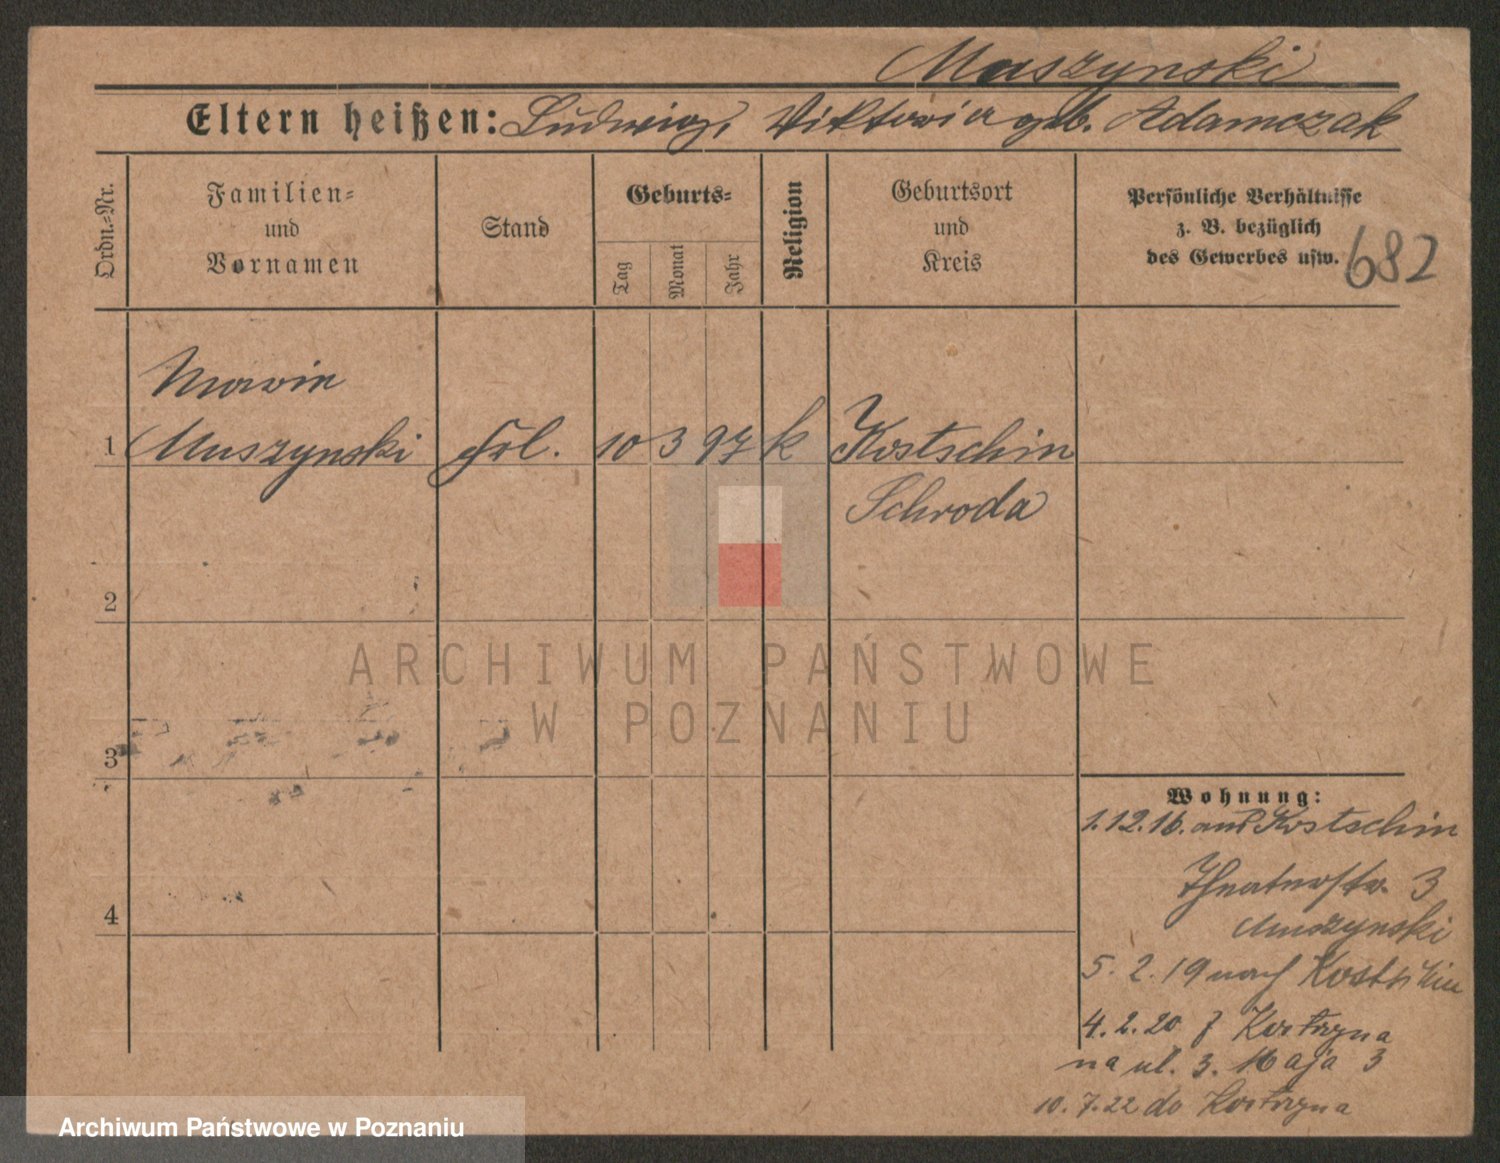 Muszynski
Eltern heißen: Ludwig, Viktoria geb. Adamczak
Ordn.=Nr.
Familien=
und
Vornamen
Stand
Geburts=
Tag
Monat
Jahr
Religion
Geburtsort
und
Kreis
Persönliche Verhältnisse
z. B. bezüglich
des Gewerbes usw.
682
Marie
1 Muszynski Frl. 10 3 97 k Kostschin
Schroda
2
ARCHIWUM PAŃSTWOWE
W POZNANIU
3
Wohnung:
1.12.16. aus Kostschin
4
Theaterstr. 3
Muszynski
5. 2. 19 nach Kostschin
4. 2. 20 z Kostrzyna
na ul. 3. Maja 3
10. 7. 22 do Kostrzyna
Archiwum Państwowe w Poznaniu